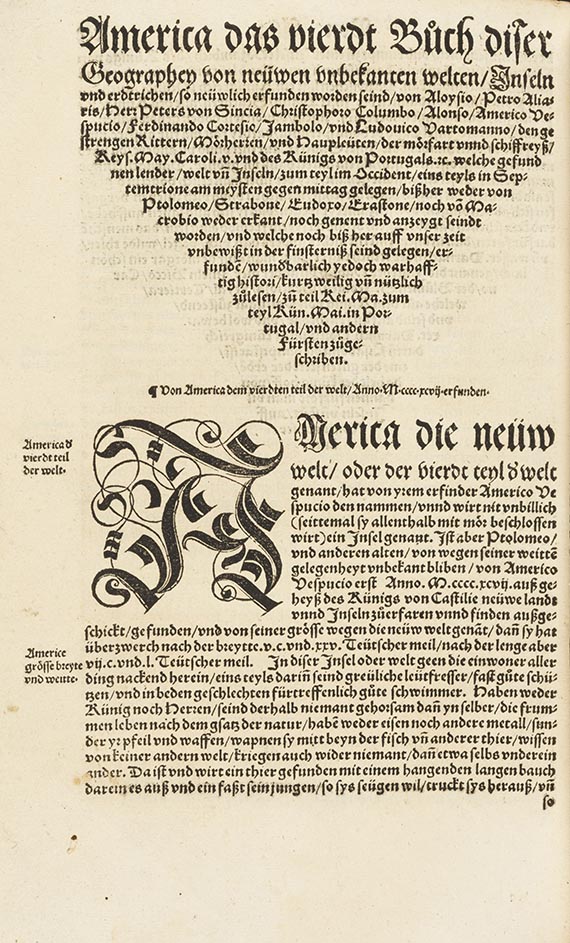 America das vierdt Bůch diser
Geographey von neüwen vnbekanten welten/Jnseln
vnd erdtrichen/so neüwlich erfunden worden seind/von Aloysio/Petro Alia-
ris/Herr Peters von Sincia/Christophoro Columbo/Alonso/Americo Ve-
spucio/Ferdinando Cortesio/Jambolo/vnd Ludouico Vartomanno/den ge
strengen Rittern/Mörherren/vnd Haupleüten/der mörfart vnnd schiffreyß/
Keys.May.Caroli.v.vnd des Künigs von Portugals.ꝛc. welche gefund
nen lender/welt vñ Jnseln/zum teyl im Occident/eins teyls in Sep-
temtrione am meysten gegen mittag gelegen/bißher weder von
Ptolomeo/Strabone/Eudoxo/Erastone/noch võ Ma-
crobio weder erkant/noch genent vnd anzeygt seindt
worden/vnd welche noch biß her auff vnser zeit
vnbewißt in der finsterniß seind gelegen/er-
fundē/wunðbarlich yedoch warhaff-
tig histori/kurtzweilig vñ nützlich
zůlesen/zů teil Kei.Ma.zum
teyl Kün.Mai.in Por-
tugal/vnd andern
Fürsten zůge-
schriben.
¶ Von America dem vierdten teil der welt/Anno.M.cccc.xcvij.erfunden.
America ð
vierdt teil
der welt.
AMerica die neüw
welt/oder der vierdt teyl ð welt
genant/hat von yrem erfinder Americo Ve
spucio den nammen/vnnd wirt nit vnbillich
(seittemal sy allenthalb mit mör beschlossen
wirt)ein Jnsel genant. Jst aber Ptolomeo/
vnd anderen alten/von wegen seiner weittē
gelegenheyt vnbekant bliben/von Americo
Vespucio erst Anno.M.cccc.xcvij.auß ge-
heyß des Künigs von Castilie neüwe landt
vnnd Jnseln zůerfaren vnnd finden außge-
schickt/gefunden/vnd von seiner grösse wegen die neüw welt genāt/dañ sy hat
überzwerch nach der breytte.v.c.vnd.xxv.Teütscher meil/nach der lenge aber
Americe
grösse breyte
vnd weitte.
vij.c.vnd.l.Teütscher meil. Jn diser Jnsel oder welt geen die einwoner aller
ding nackend herein/eins teyls darin̄ seind greüliche leütfresser/fast gůte schü-
tzen/vnd in beden geschlechten fürtreffenlich gůte schwimmer. Haben weder
Künig noch Herren/seind derhalb niemant gehorsam dañ yn selber/die frum-
men leben nach dem gsatz der natur/habē weder eisen noch andere metall/sun-
der yr pfeil vnd waffen/wapnen sy mitt beyn der fisch vñ anderer thier/wissen
von keiner andern welt/kriegen auch wider niemant/dañ etwa selbs vnderein
ander. Da ist vnd wirt ein thier gefunden mit einem hangenden langen bauch
darein es auß vnd ein faßt sein jungen/so sys seügen wil/truckt sys herauß/vñ
so